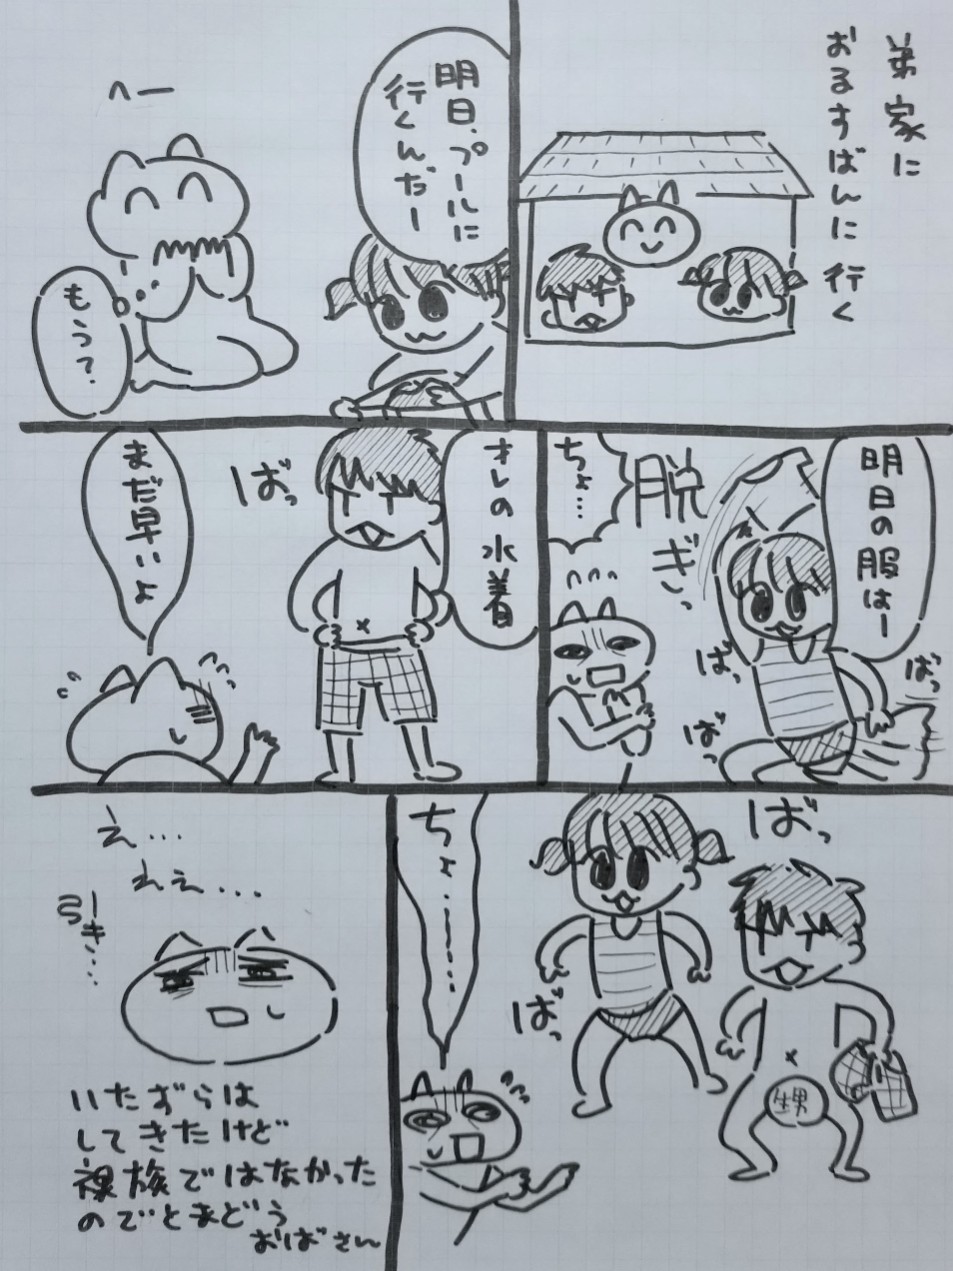 弟家に
おるすばんに行く
明日、プールに
行くんだー
へー
もう？
明日の服はー
ばっ
脱
ぎっ
ばっ
ばっ
ちょ…
オレの水着
ばっ
まだ早いよ
ばっ
ばっ
甥
ちょ……
え…
ええ…
引き…
いたずらは
してきたけど
裸族ではなかった
のでとまどう
おばさん